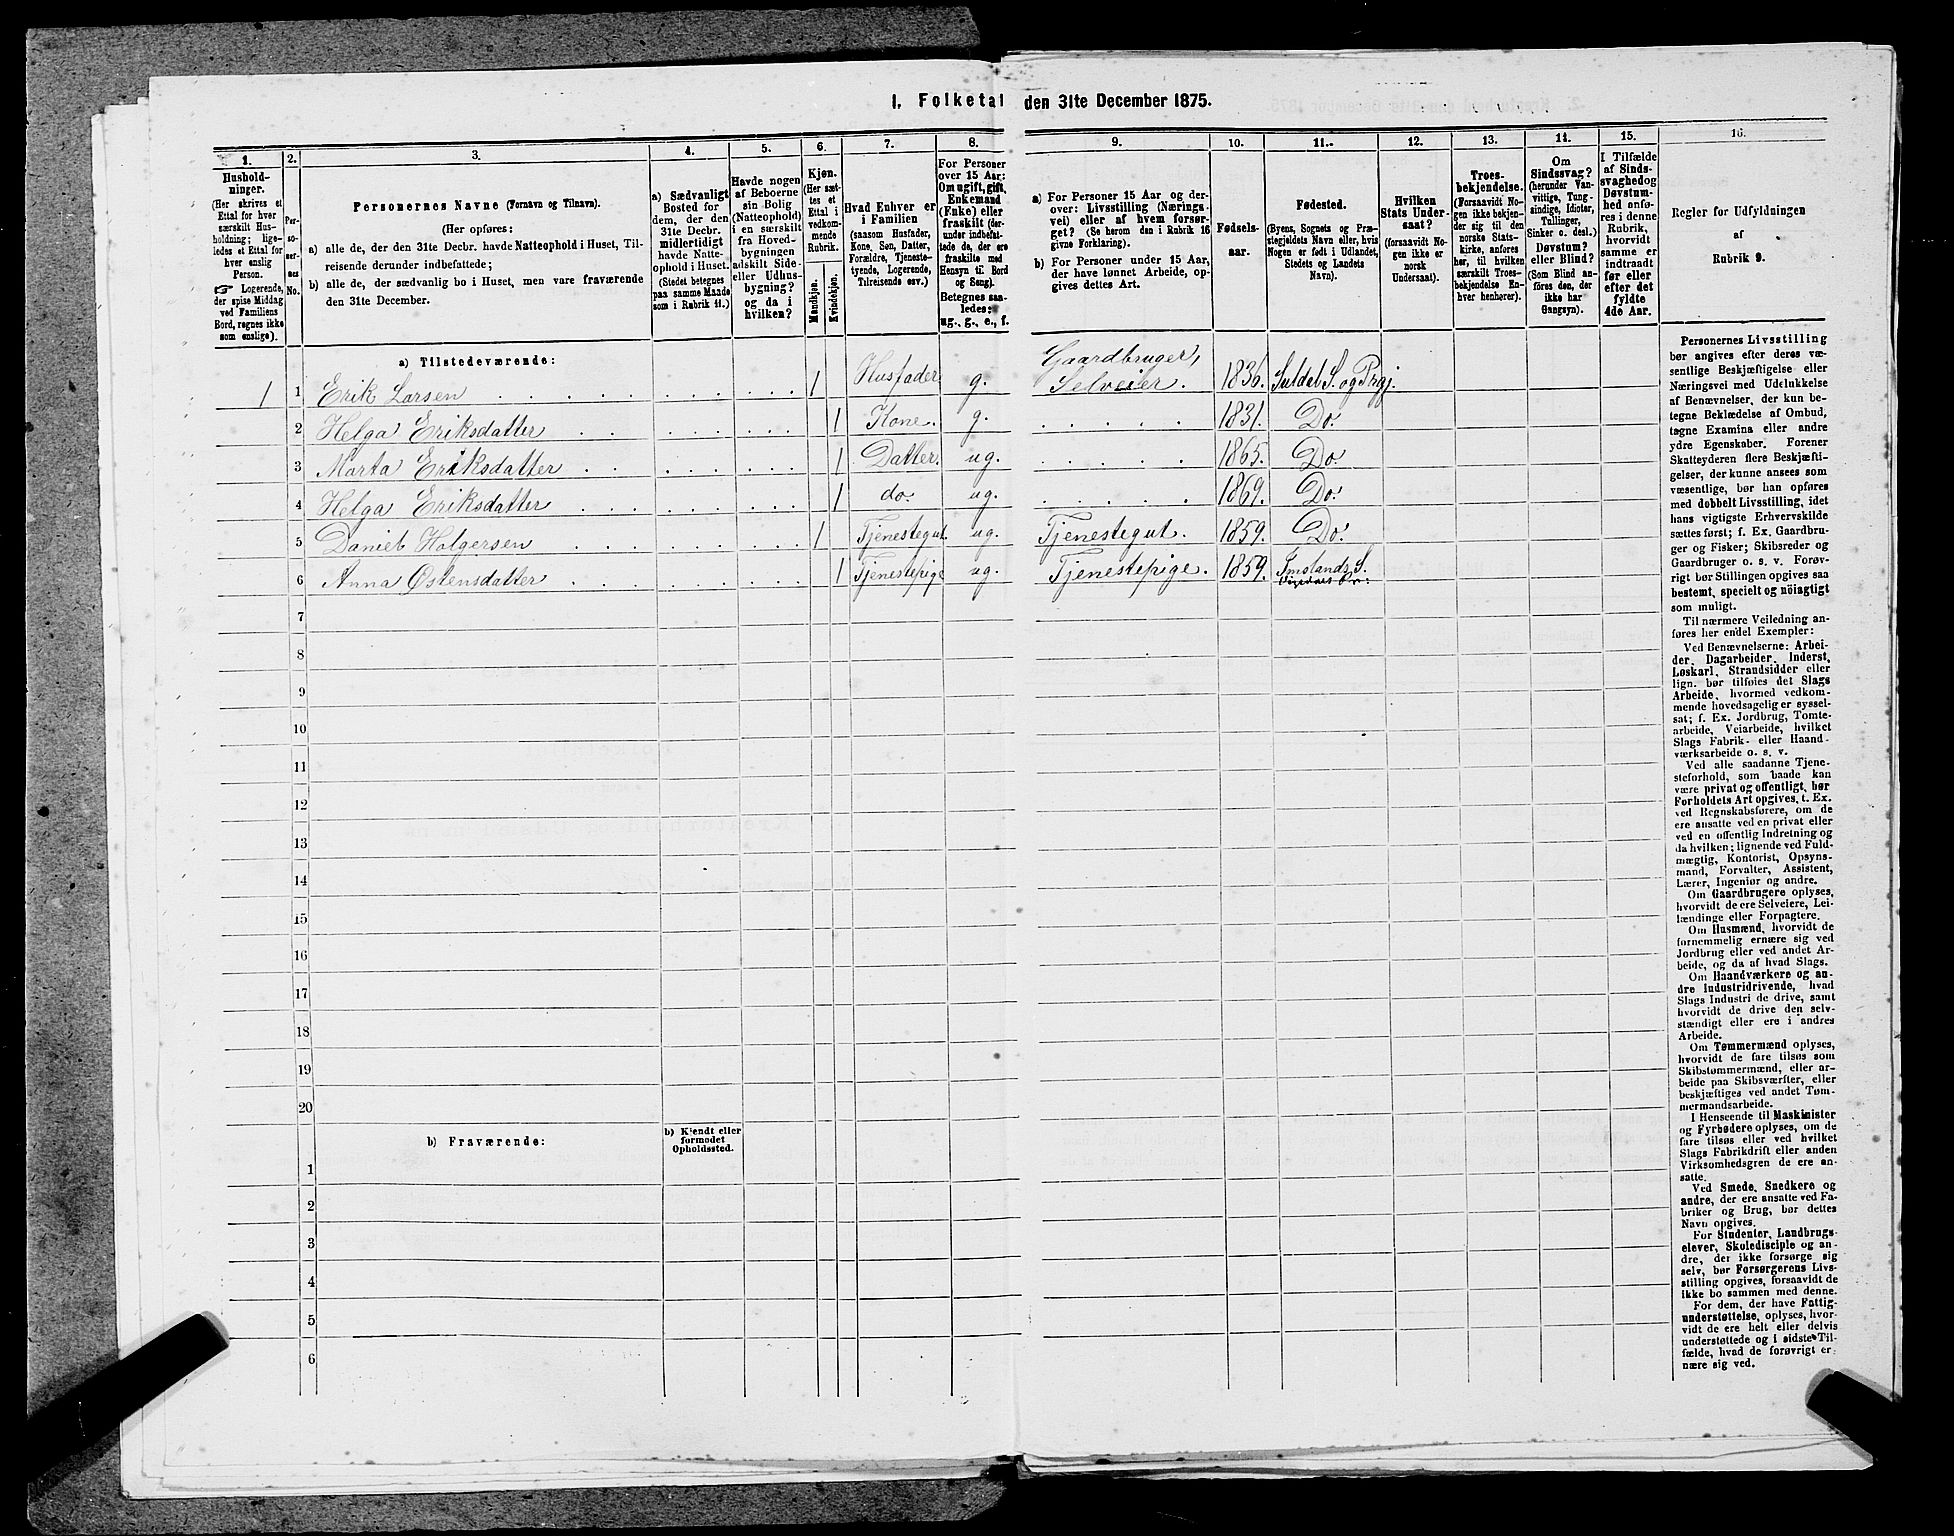 I. Folketal den 31te December 1875.
1.
2.
3.
4.
5.
6.
7.
8.
9.
10.
11.
12.
13.
14.
15.
16.
Hushold-
ninger.
(Her skrives et
Ettal for hver
særskilt Hus-
holdning; lige-
ledes et Ettal for
hver enslig
Person.
☞ Logerende,
der spise Middag
ved Familiens
Bord, regnes ikke
som enslige).
Per-
so-
ner-
nes
No.
Personernes Navne (Fornavn og Tilnavn).
(Her opføres:
a) alle de, der den 31te Decbr. havde Natteophold i Huset, Til-
reisende derunder indbefattede;
b) alle de, der sædvanlig bo i Huset, men vare fraværende
den 31te December.
a) Sædvanligt
Bosted for
dem, der den
31te Decbr.
midlertidigt
havde Natte-
ophold i Huset.
(Stedet betegnes
paa samme Maade
som i Rubrik 11.)
Havde nogen
af Beboerne
sin Bolig
(Natteophold)
i en særskilt
fra Hoved-
bygningen
adskilt Side-
eller Udhus-
bygning?
og da i
hvilken?
Kjøn.
(Her sæt-
tes et
Ettal i
vedkom-
mende
Rubrik.
Mandkjøn.
Kvindekjøn.
Hvad Enhver er
i Familien
(saasom Husfader,
Kone, Søn, Datter,
Forældre, Tjeneste-
tyende, Logerende,
Tilreisende osv.)
For Personer
over 15 Aar:
Om ugift, gift,
Enkemand
(Enke) eller
fraskilt (der-
under indbefat-
tede de, der ere
fraskilte med
Hensyn til Bord
og Seng).
Betegnes saa-
ledes:
ug., g., e., f.
a) For Personer 15 Aar og der-
over: Livsstilling (Nærings-
vei) eller af hvem forsør-
get? (Se herom den i Rubrik 16
givne Forklaring).
b) For Personer under 15 Aar,
der have lønnet Arbeide, op-
gives dettes Art.
Fødsels-
aar.
Fødested.
(Byens, Sognets og Præ-
stegjeldets Navn eller, hvis
Nogen er født i Udlandet,
Stedets og Landets
Navn).
Hvilken
Stats Under-
saat?
(forsaavidt No-
gen ikke er
norsk
Undersaat).
Troes-
bekjendelse.
(Forsaavidt No-
gen ikke bekjen-
der sig til den
norske Stats-
kirke, anføres
her, til hvilken
særskilt Troes-
bekjendelse En-
hver henhører).
Om
Sindssvag?
(herunder Van-
vittige, Tung-
sindige, Idioter,
Tullinger,
Sinker o. desl.)
Døvstum?
eller Blind?
(Som Blind an-
føres den, der
ikke har
Gangsyn).
I Tilfælde
af Sinds-
svaghed og
Døvstum-
hed anfø-
res i denne
Rubrik,
hvorvidt
samme er
indtraadt
før eller
efter det
fyldte
4de Aar.
Regler for Udfyldningen
af
Rubrik 9.
a) Tilstedeværende:
1 1 Erik Larsen 1 Husfader g. Gaardbruger, Selveier. 1836. Suldal S. og Prgj.
2 Helga Eriksdatter 1 Kone. g. 1831. Do.
3 Marta Eriksdatter 1 Datter. ug. 1865. Do.
4 Helga Eriksdatter 1 do. ug. 1869. Do.
5 Daniel Holgersen 1 Tjenestegut. ug. Tjenestegut. 1859. Do.
6 Anna Østensdatter 1 Tjenestepige ug. Tjenestepige. 1859. Imslands S.
7
8
9
10
11
12
13
14
15
16
17
18
19
20
b) Fraværende:
b) Kjendt eller
formodet
Opholdssted.
1
2
3
4
5
6
Personernes Livsstilling
bør angives efter deres væ-
sentlige Beskjæftigelse eller
Næringsvei med Udelukkelse
af Benævnelser, der kun be-
tegne Beklædelse af Ombud,
tagne Examina eller andre
ydre Egenskaber. Forener
Skatteyderen flere Beskjæfti-
gelser, der kunne ansees som
væsentlige, bør han opføres
med dobbelt Livsstilling, idet
hans vigtigste Erhvervskilde
sættes først; f. Ex. Gaardbru-
ger og Fisker; Skibsreder og
Gaardbruger o. s. v. Forøv-
rigt bør Stillingen opgives saa
bestemt, specielt og nøiagtigt
som muligt.
Til nærmere Veiledning an-
føres her endel Exempler:
Ved Benævnelserne: Arbei-
der, Dagarbeider, Inderst,
Løskarl, Strandsidder eller
lign. bør tilføies det Slags
Arbeide, hvormed vedkom-
mende hovedsagelig er syssel-
sat; f. Ex. Jordbrug, Tomte-
arbeide, Veiarbeide, hvilket
Slags Fabrik- eller Haand-
værksarbeide o. s. v.
Ved alle saadanne Tjene-
steforhold, som baade kan
være privat og offentligt, bør
Forholdets Art opgives, t. Ex.
ved Regnskabsførere, om de
ere ansatte ved en privat eller
ved en offentlig Indretning og
da hvilken; lignende ved Fuld-
mægtig, Kontorist, Opsyns-
mand, Forvalter, Assistent,
Lærer, Ingeniør og andre.
Om Gaardbrugere oplyses,
hvorvidt de ere Selveiere, Lei-
lændinge eller Forpagtere.
Om Husmænd, hvorvidt de
fornemmelig ernære sig ved
Jordbrug eller ved andet Ar-
beide, og da af hvad Slags.
Om Haandværkere og an-
dre Industridrivende, hvad
Slags Industri de drive, samt
hvorvidt de drive den selv-
stændigt eller ere i andres
Arbeide.
Om Tømmermænd oplyses,
hvorvidt de fare tilsøs som
Skibstømmermænd, eller ar-
beide paa Skibsværfter, eller
beskjæftiges ved andet Tøm-
mermandsarbeide.
I Henseende til Maskinister
og Fyrbødere oplyses, om de
fare tilsøs eller ved hvilket
Slags Fabrikdrift eller anden
Virksomhedsgren de ere an-
satte.
Ved Smede, Snedkere og
andre, der ere ansatte ved Fa-
briker og Brug, bør dettes
Navn opgives.
For Studenter, Landbrugs-
elever, Skoledisciple og an-
dre, der ikke forsørge sig
selv, bør Forsørgerens Livs-
stilling opgives, forsaavidt de
ikke bo sammen med denne.
For dem, der have Fattig-
understøttelse, oplyses, hvor-
vidt de ere helt eller delvis
understøttede og i sidste Til-
fælde, hvad de forøvrigt er-
nære sig ved.